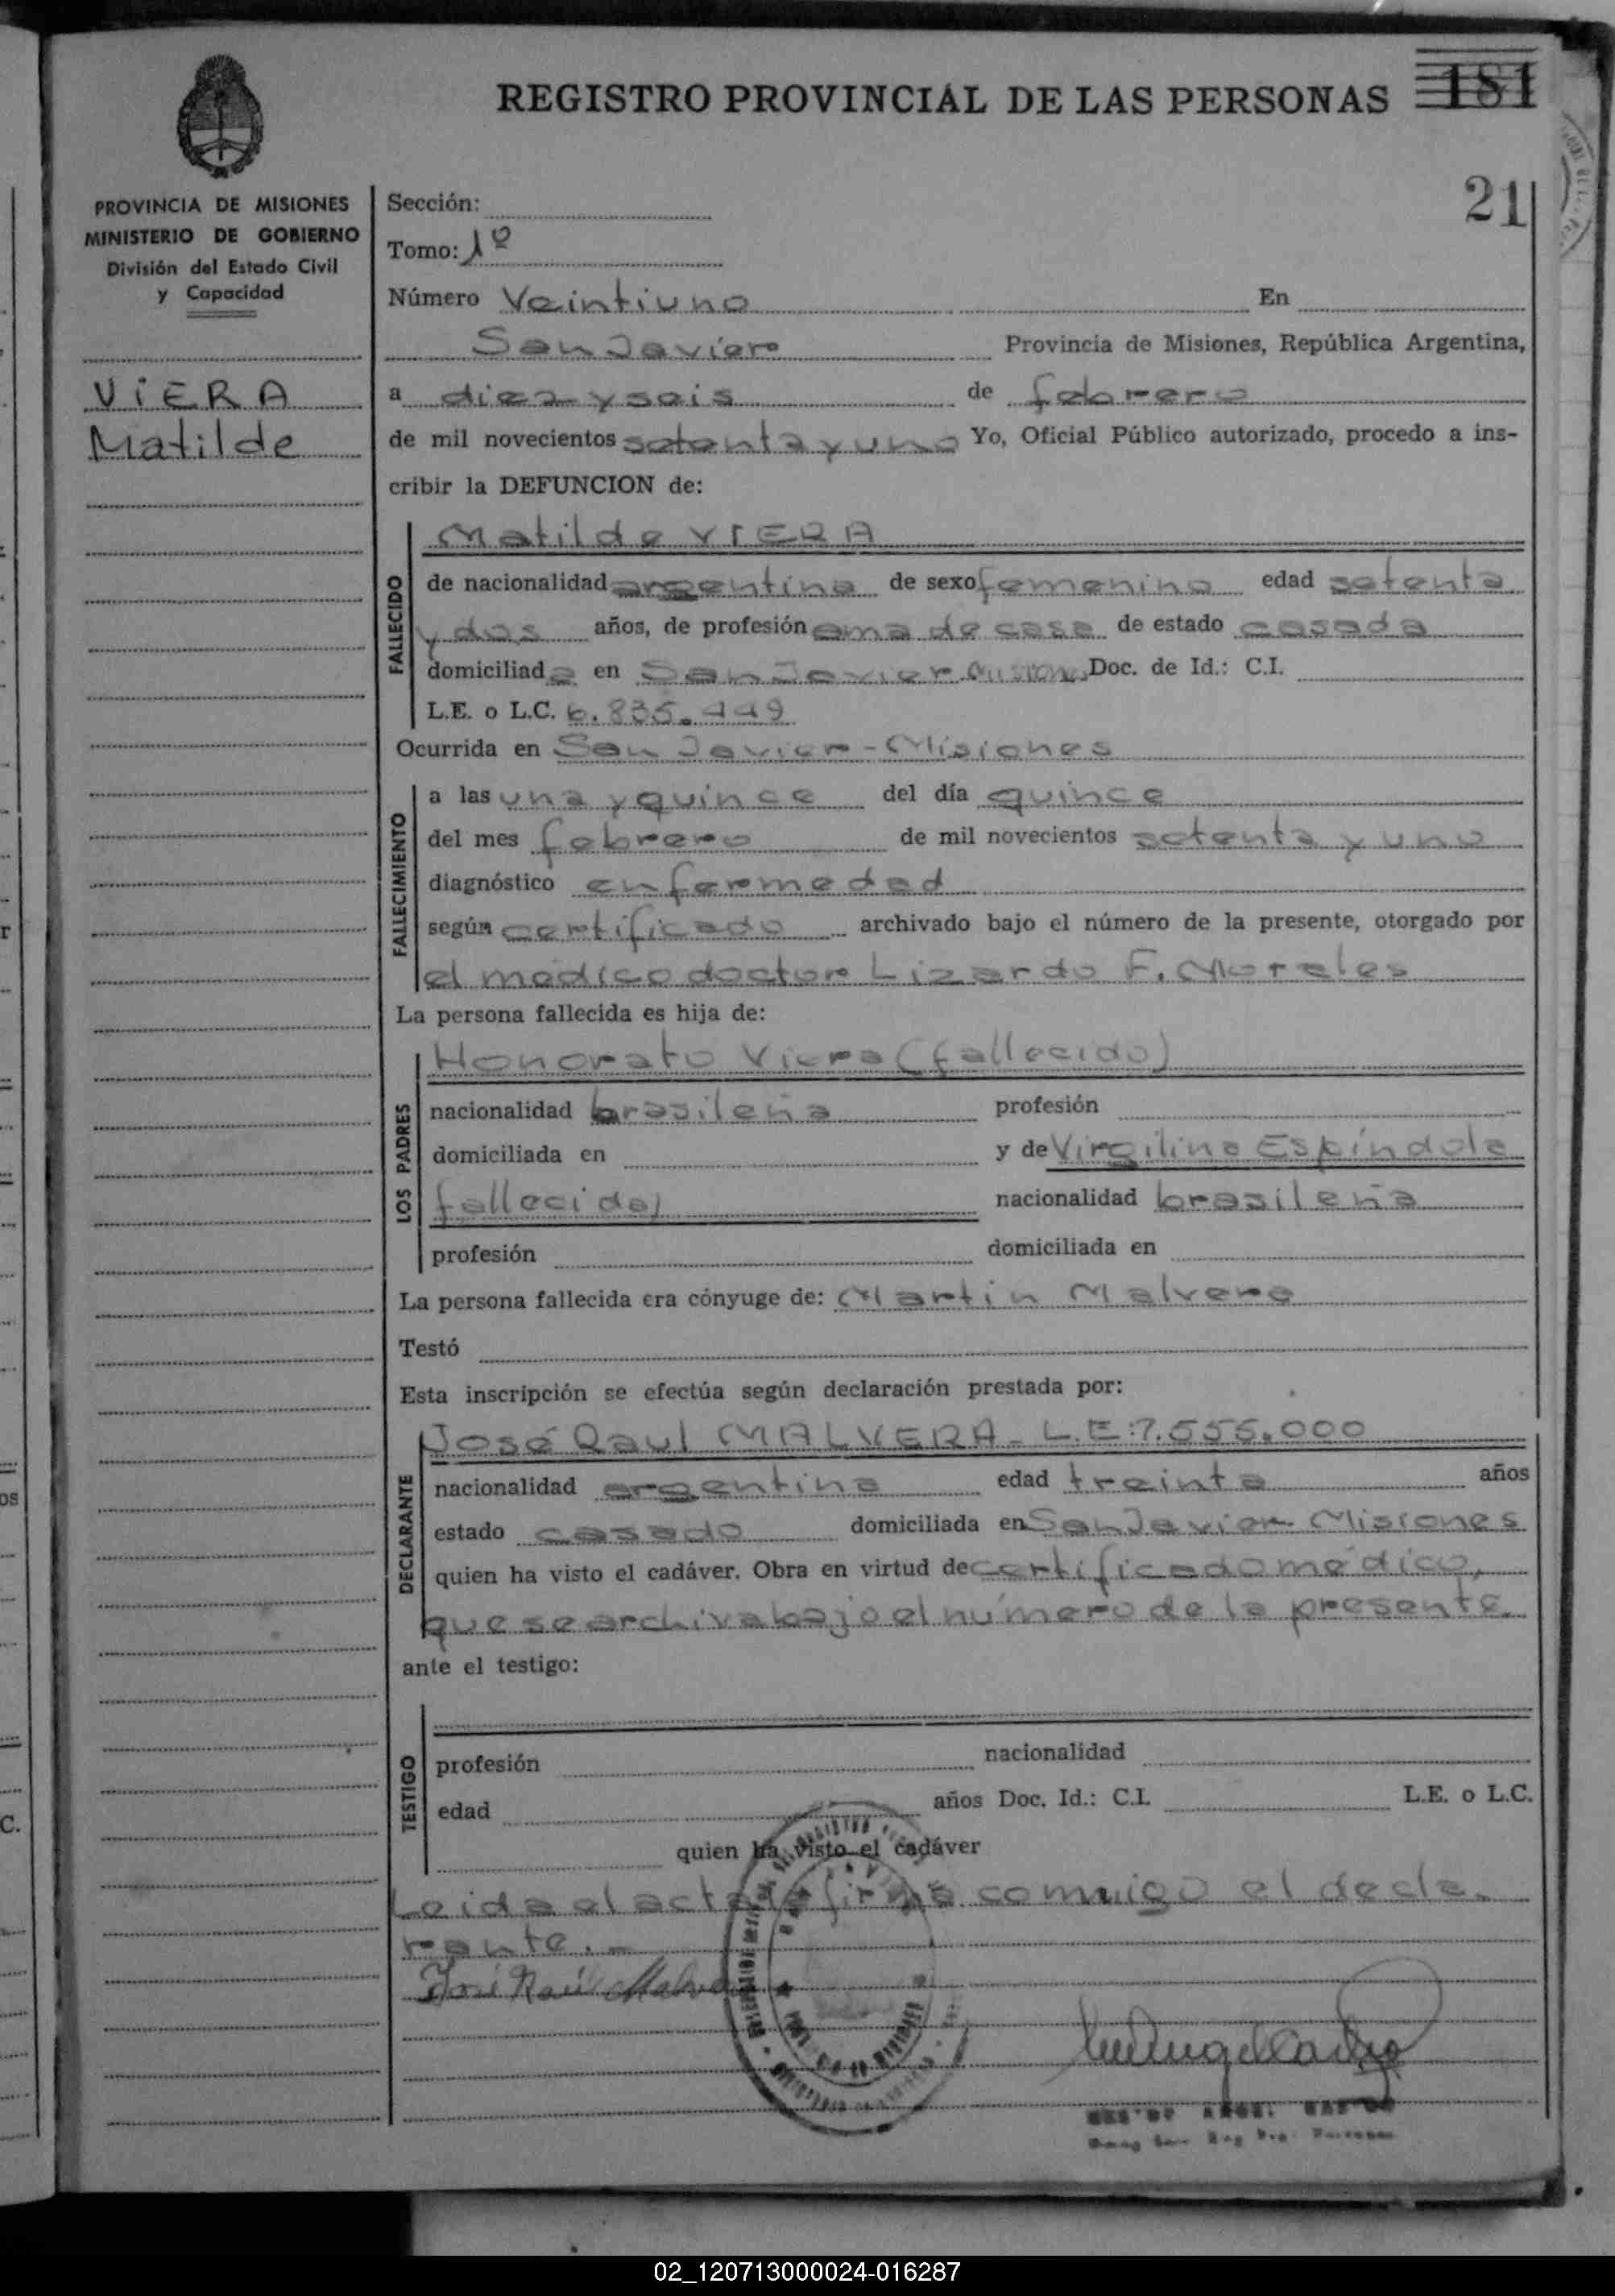 REGISTRO PROVINCIAL DE LAS PERSONAS 181
21
PROVINCIA DE MISIONES
MINISTERIO DE GOBIERNO
División del Estado Civil
y Capacidad
VIERA
Matilde
Sección:
Tomo: 1º
Número Veintiuno En
San Javier Provincia de Misiones, República Argentina,
a diez y seis de febrero
de mil novecientos setenta y uno Yo, Oficial Público autorizado, procedo a ins-
cribir la DEFUNCION de:
FALLECIDO
Matilde VIERA
de nacionalidad argentina de sexo femenino edad setenta
y dos años, de profesión ama de casa de estado casada
domiciliada en San Javier Misiones Doc. de Id.: C.I.
L.E. o L.C. 6.835.449
Ocurrida en San Javier - Misiones
FALLECIMIENTO
a las una y quince del día quince
del mes febrero de mil novecientos setenta y uno
diagnóstico enfermedad
según certificado archivado bajo el número de la presente, otorgado por
el médico doctor Lizardo F. Morales
La persona fallecida es hija de:
LOS PADRES
Honorato Viera (fallecido)
nacionalidad brasileña profesión
domiciliada en y de Virgilina Espíndola
fallecida) nacionalidad brasileña
profesión domiciliada en
La persona fallecida era cónyuge de: Martín Malvera
Testó
Esta inscripción se efectúa según declaración prestada por:
DECLARANTE
José Raul MALVERA - L.E:7.555.000
nacionalidad argentina edad treinta años
estado casado domiciliada en San Javier Misiones
quien ha visto el cadáver. Obra en virtud de certificado médico,
que se archiva bajo el número de la presente
ante el testigo:
TESTIGO
profesión nacionalidad
edad años Doc. Id.: C.I. L.E. o L.C.
quien ha visto el cadáver
Leida el acta firma conmigo el decla-
rante. -
José Raúl Malvera
02_120713000024-016287